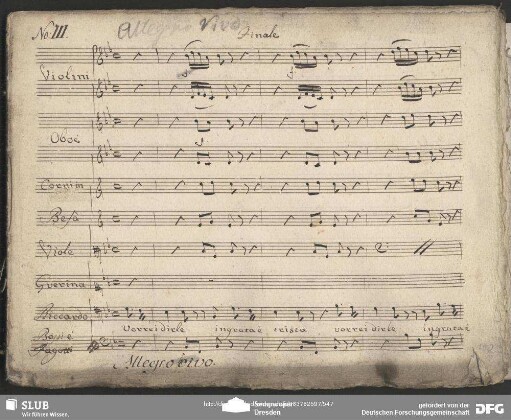 No. III. Allegro vivo Finale
Violini
Oboe
Corni in
Befa
Viole
Guerina
Riccardo
vorrei dirle ingrata è vorrei dirle ingrata è
Bassi e
Fagotti
Allegro vivo.
SLUB
Wir führen Wissen.
Dresden
gefördert von der
Deutschen Forschungsgemeinschaft
DFG